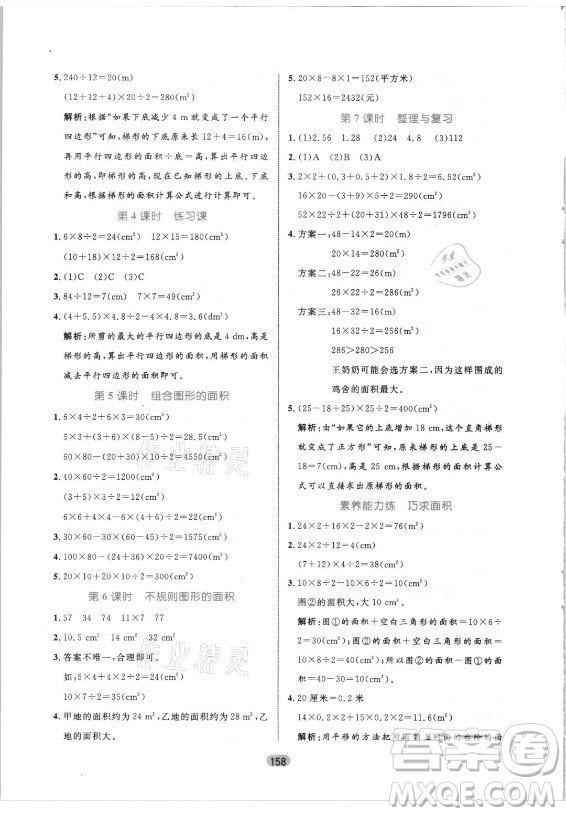 5. 240÷12=20(m)
(12+12+4)×20÷2=280(m²)
解析:根据“如果下底减少 4 m 就变成一个平行
四边形”可知,梯形的下底原来长 12+4=16(m)。
再用平行四边形的面积÷底=高,求出平行四
边形的高,也是梯形的高。现在已知梯形的上
底、下底和高,根据梯形的面积计算公式计算
即可。
第 4 课时 练习课
1. 6×8÷2=24(cm²) 12×15=180(cm²)
(10+18)×12÷2=168(cm²)
2. (1)C (2)C
3. 84÷12=7(cm) 7×7=49(cm²)
4. (4+5.5)×4÷2-4×4=3(dm²)
解析:所剪的最大的平行四边形的底是 4 dm,高是
梯形的高,算出平行四边形的面积,用梯形的面积
减去平行四边形的面积即可。
第 5 课时 组合图形的面积
1. 6×4÷2+6×3=30(cm²)
5×3+(3+6)×4÷2=33(cm²)
60×80-(20+30)×10÷2=4550(cm²)
2. 40×60÷2=1200(cm²)
(3+6)×3÷2=13.5(cm²)
6×6+4×4-(6+4)×6÷2=22(cm²)
3. 30×60-(30+60-45)×10÷2=1575(cm²)
4. 100×80-(20+40)×20÷2=7400(cm²)
5. 20×10+20×10÷2=300(cm²)
第 6 课时 不规则图形的面积
1. 57 34 74 11×7 77
2. 10.5 cm² 12 cm² 14 cm²
3. 答案不唯一,合理即可。
如:5×4=20(cm²)
10×7÷2=35(cm²)
4. 甲地的面积约为 24 m²,乙地的面积约为 28 m²,乙
地的面积大。
5. 20×8-8×1=152(平方米)
152×16=2432(元)
第 7 课时 整理与复习
1. (1)2.56 1.28 (2)24 4.8 (3)112
2. (1)A (2)B (3)A
3. 2×2+(0.3+0.5+2)×1.8÷2=6.52(cm²)
16×20-(3+9)×5÷2=290(cm²)
52×22÷2+(20+31)×(48-5×2)... 
4. 方案一:48-14×2=20(m)
20×14=280(m²)
方案二:48-22=26(m)
26×22÷2=286(m²)
方案三:48-32=16(m)
16×32÷2=256(m²)
286>280>256
王奶奶可能会选方案二,因为这样围成的
鸡舍的面积最大。
5. (25-18+25)×25÷2=400(cm²)
解析:由“如果它的上底增加 18 cm,这个直角梯形
就变成了正方形”可知,原来梯形的上底是 25-
18=7(cm),高是 25 cm,根据梯形的面积计算公
式可以直接求出原梯形的面积。
素养能力练 巧求面积
1. 24×2+16×2-2×2=76(m²)
2. 24×2÷12=4(cm)
(7+12)×4÷2=38(cm²)
3. 10×8÷2-10×6÷2=10(cm²)
图②的面积大,大 10 cm²。
解析:图①的面积+空白三角形的面积=10×6÷
2=30(cm²);图②的面积+空白三角形的面积=
10×8÷2=40(cm²);所以图②的面积比图①的面
积大 40-30=10(cm²)。
4. 20 厘米=0.2 米
14×0.2×2+15×0.2×2=11.6(m²)
158
作业精灵
作业精灵
答案圈
MXQE.COM